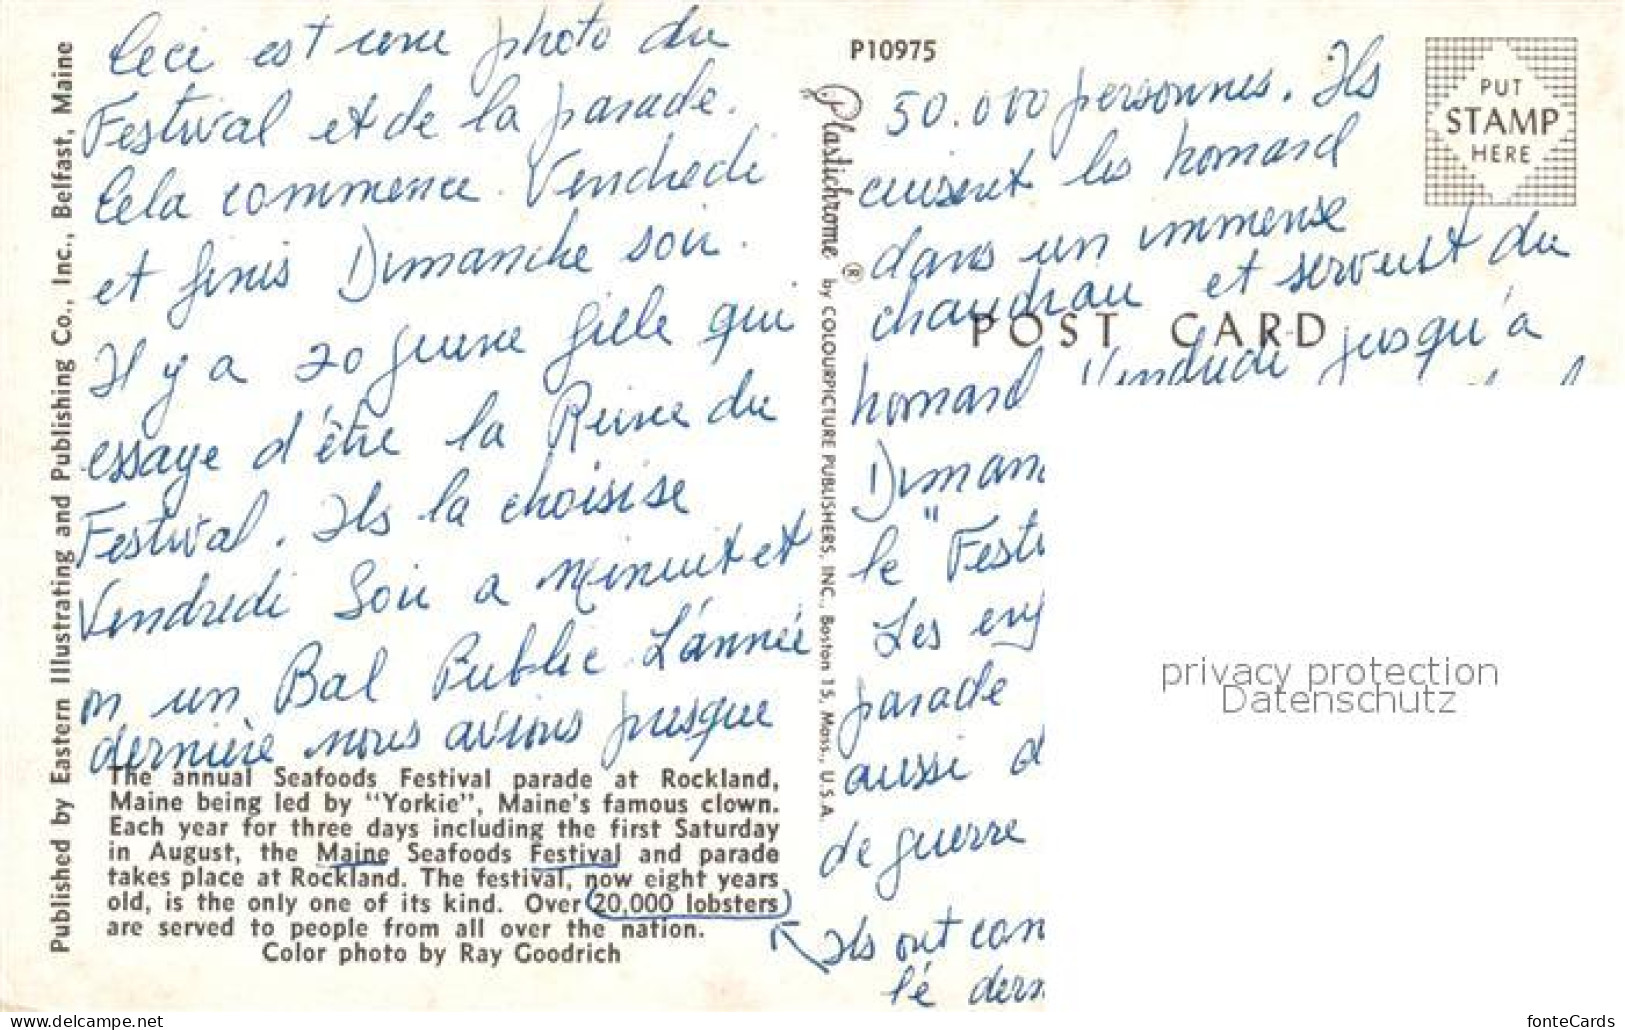 Published by Eastern Illustrating and Publishing Co., Inc., Belfast, Maine
Ceci est une photo du
Festival et de la parade.
Cela commence Vendredi
et finis Dimanche soir.
Il y a 20 jeune fille qui
essaye d'être la Reine du
Festival. Ils la choisise
Vendredi Soir a Minuit et
on un Bal Public L'année
dernière nous avions presque
The annual Seafoods Festival parade at Rockland,
Maine being led by "Yorkie", Maine's famous clown.
Each year for three days including the first Saturday
in August, the Maine Seafoods Festival and parade
takes place at Rockland. The festival, now eight years
old, is the only one of its kind. Over 20,000 lobsters
are served to people from all over the nation.
Color photo by Ray Goodrich
Plastichrome ® by COLOURPICTURE PUBLISHERS, INC., Boston 15, Mass., U.S.A.
P10975
PUT
STAMP
HERE
POST CARD
50.000 personnes. Ils
cuisent les homard
dans un immense
chaudrau et servent du
homard Vendredi jusqu'à
Diman
le "Festi
Les
parade
aussi d
de guerre
Ils ont con
l'é dern
privacy protection
Datenschutz
https://www.delcampe.net
fonteCards